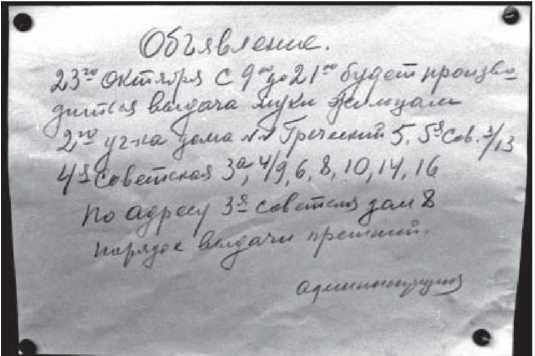 Объявление.
23го октября с 9оо до 21оо будет произво-
дится выдача муки жильцам
2го уч-ка дома №№ Греческий 5, 5я Сов. 3/13
4я советская 3а, 4/9, 6, 8, 10, 14, 16
по адресу 3я советская дом 8
порядок выдачи прежний.
администрация